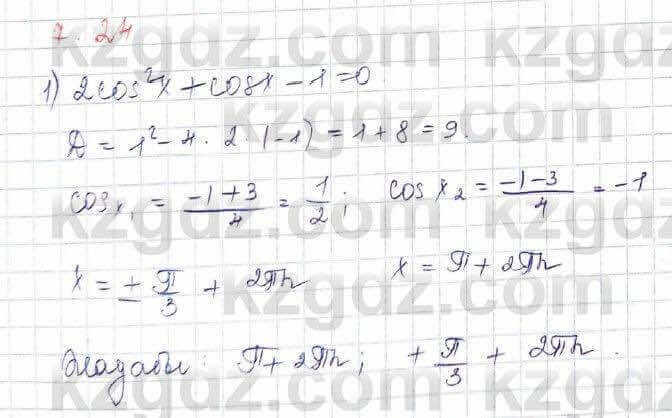 7. 24
1) 2cos²x + cosx − 1 = 0
D = 1² − 4 · 2 · (−1) = 1 + 8 = 9.
cosx₁ = (−1+3)/4 = 1/2; cosx₂ = (−1−3)/4 = −1
x = ± π/3 + 2πn x = π + 2πn
Жауабы: π + 2πn; + π/3 + 2πn.
kzgdz.com kzgdz.com
kzgdz.com kzgdz.com
kzgdz.com kzgdz.com
kzgdz.com kzgdz.com